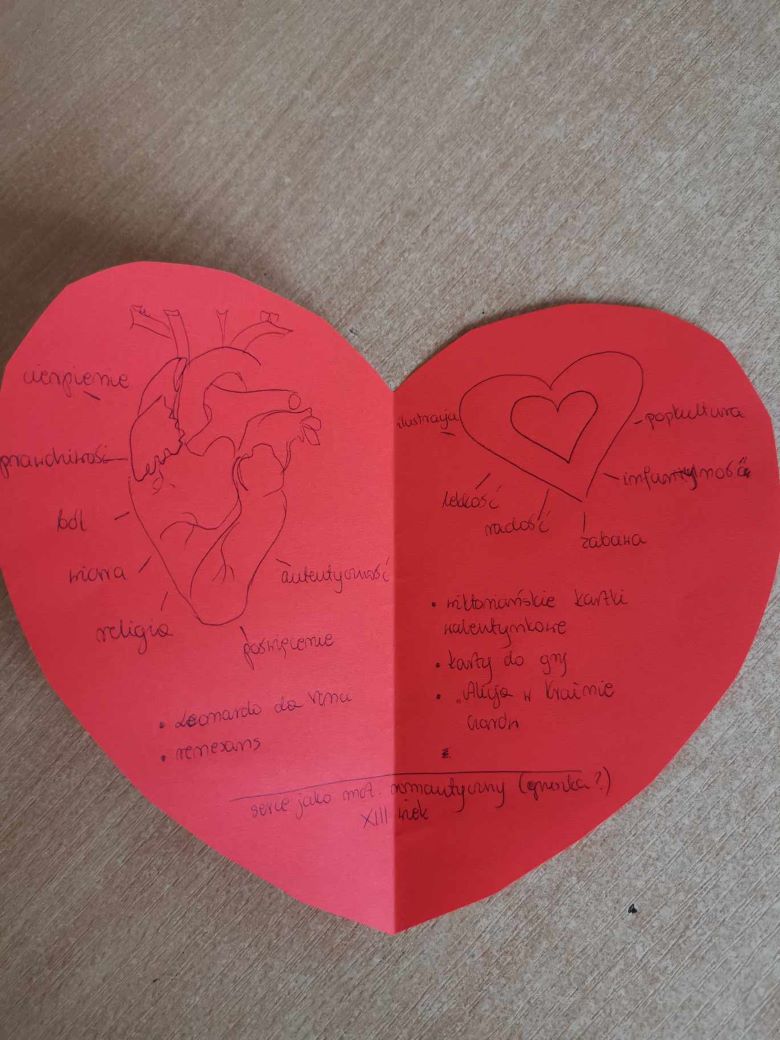 cierpienie
prawdziwość
ból
wiara
religia
autentyczność
poświęcenie
• Leonardo da Vinci
• renesans
ilustracja
lekkość
radość
zabawa
infantylność
popkultura
• wiktoriańskie kartki
walentynkowe
• karty do gry
• "Alicja w Krainie
Czarów
serce jako mot. romantyczny (gruszka?)
XIII wiek